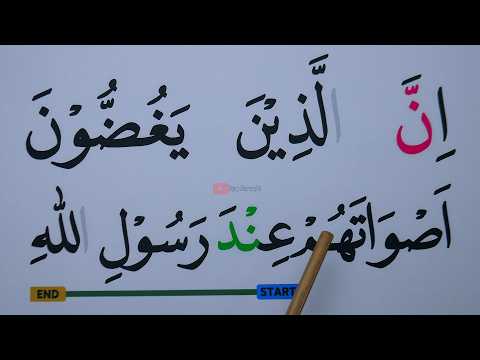 اِنَّ الَّذِيْنَ يَغُضُّوْنَ
اَصْوَاتَهُمْ عِنْدَ رَسُوْلِ اللهِ
END START